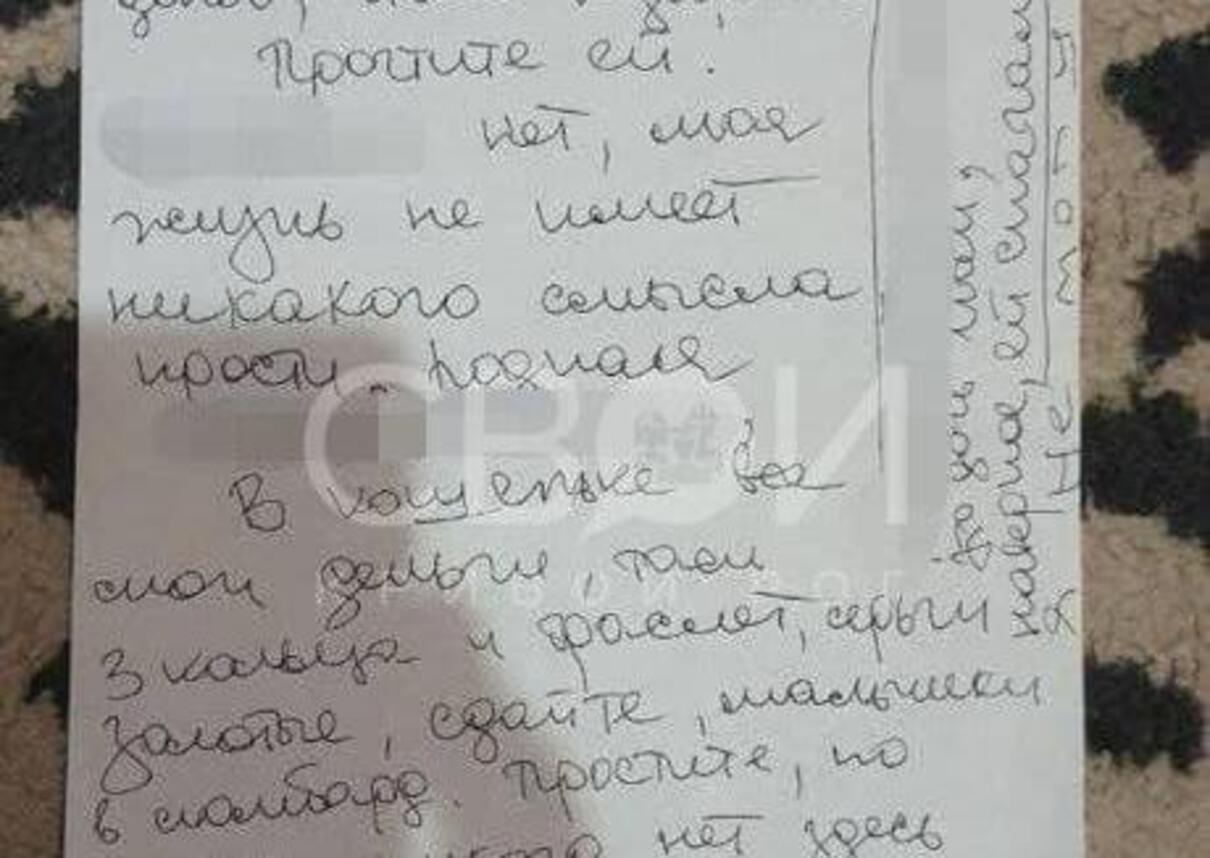 Простите ей.
нет, моя
жизнь не имеет
никакого смысла
прости. Родная
В кошельке все
мои деньги, там
3 кольца и браслет, серьги
золотые, сдайте, малышки
в ломбард. Простите, но
нет здесь
наверное, ей
Не могу
СВОИ
КРИВОЙ РОГ